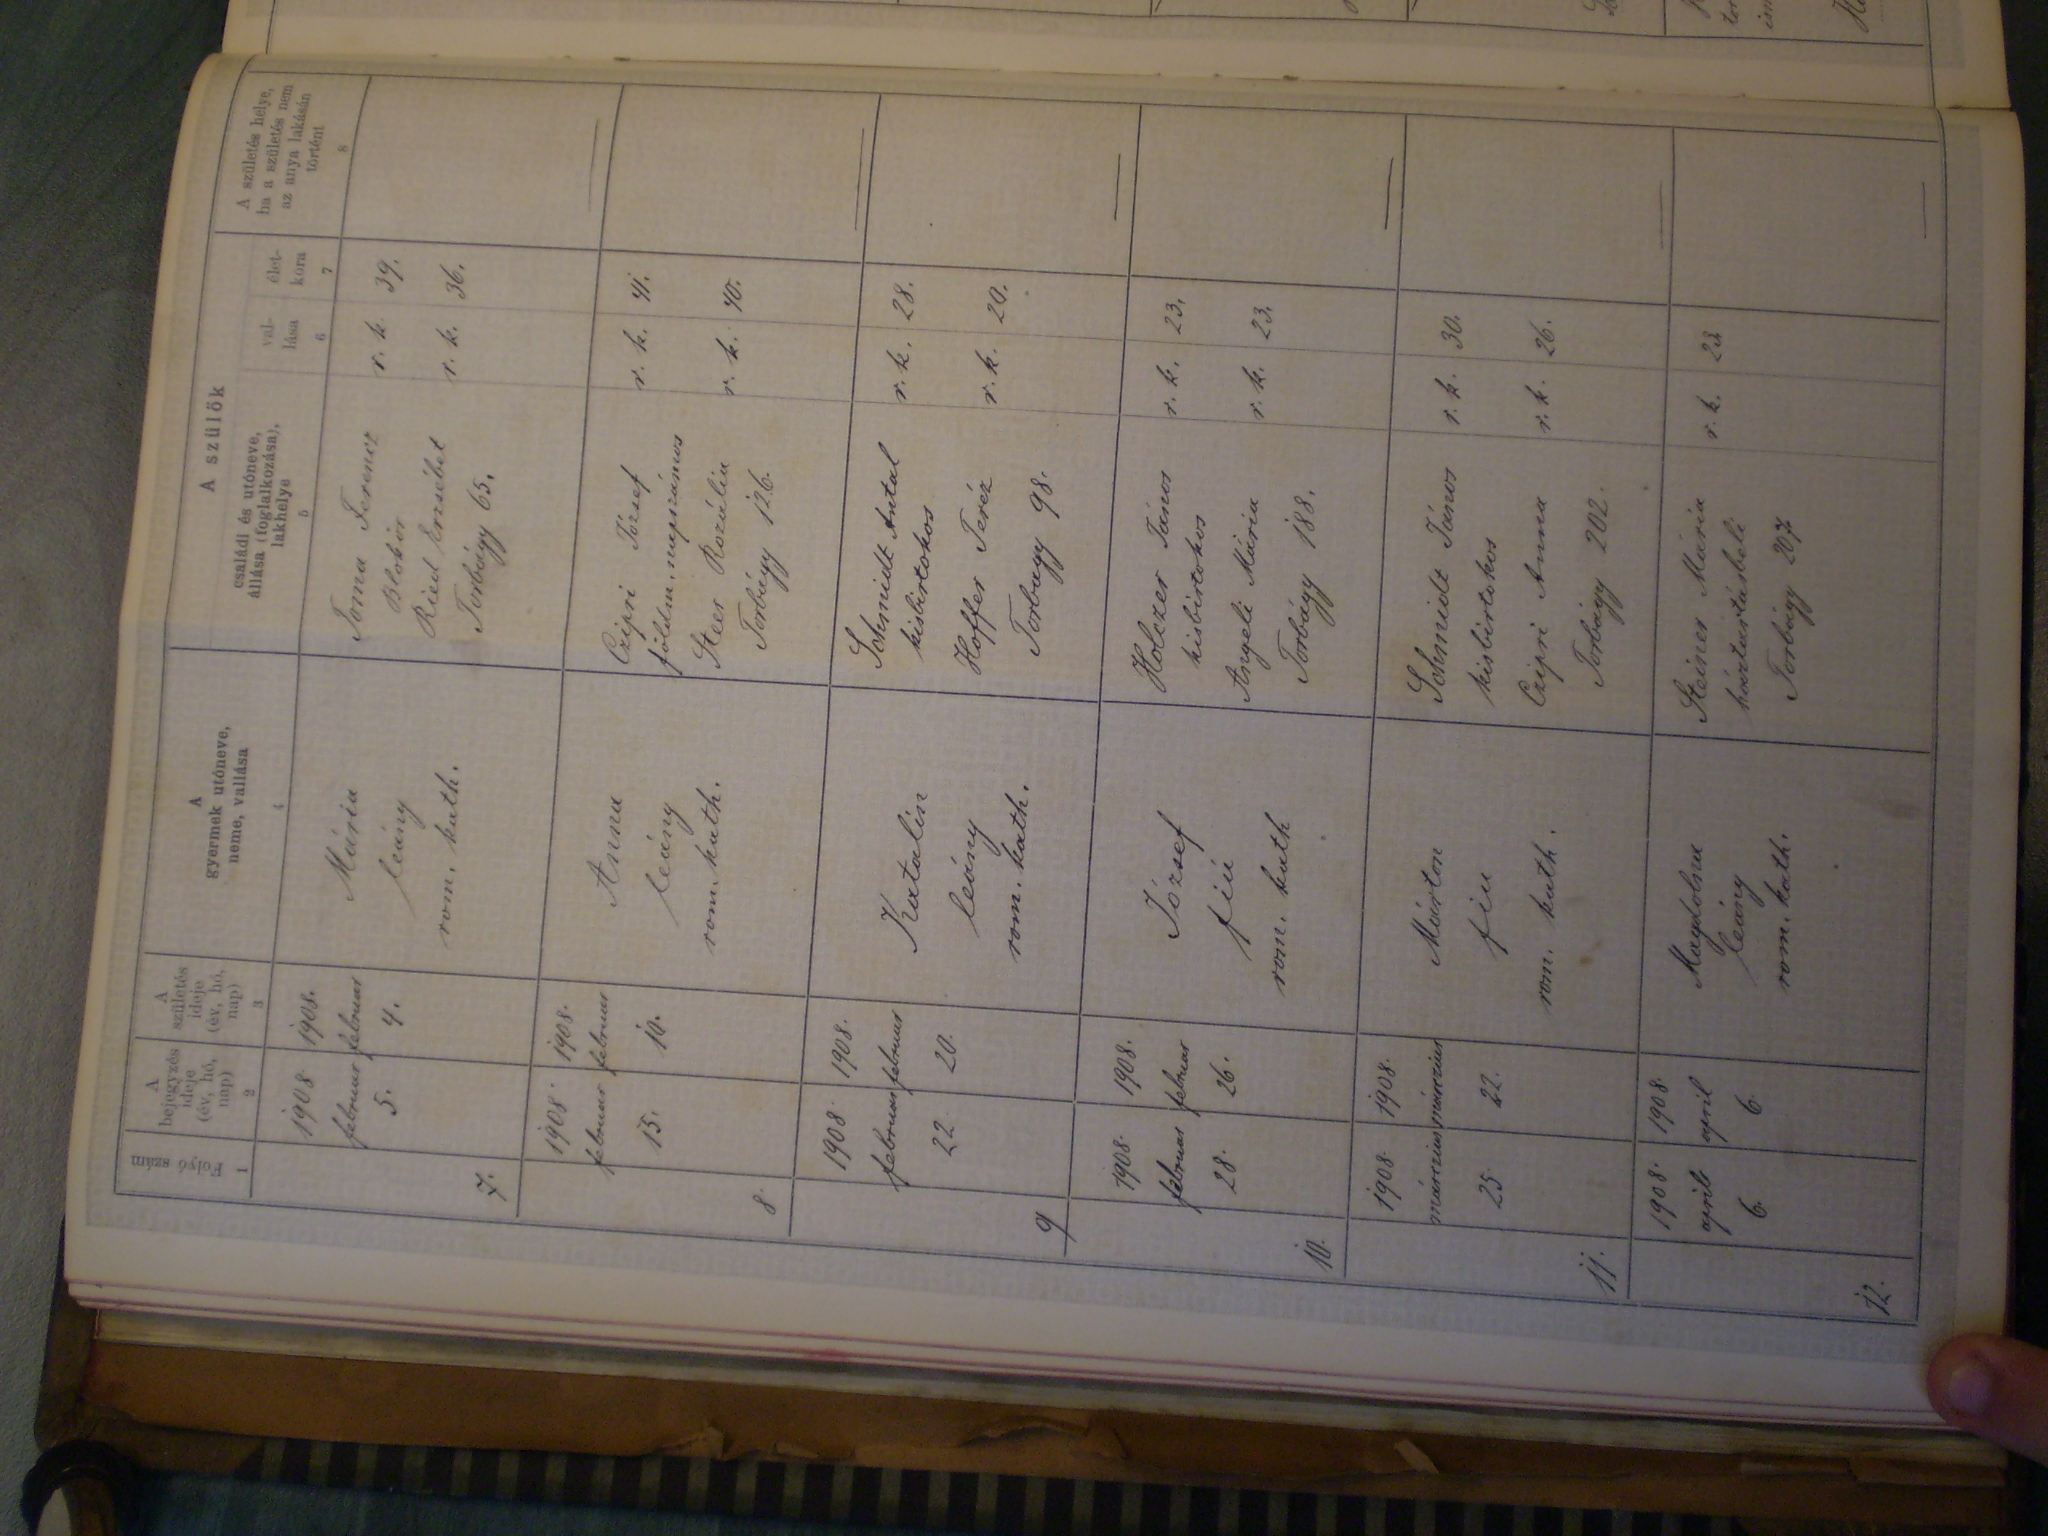 Folyó szám
1
A
bejegyzés
ideje
(év, hó,
nap)
2
A
születés
ideje
(év, hó,
nap)
3
A
gyermek utóneve,
neme, vallása
4
A szülők
családi és utóneve,
állása (foglalkozása),
lakhelye
5
val-
lása
6
élet-
kora
7
A születés helye,
ha a születés nem
az anya lakásán
történt
8
7.
1908
február
5.
1908.
február
4.
Mária
leány
rom. kath.
Toma Ferencz
Ried Erzsébet
Torbágy 65.
r. k. 39.
r. k. 36.
8.
1908.
február
15.
1908.
február
10.
Anna
leány
rom. kath.
Czipri József
földm. napszámos
Steer Rozália
Torbágy 126.
r. k. 41.
r. k. 40.
9
1908.
február
22
1908.
február
20.
Katalin
leány
rom. kath.
Schmidt Antal
kisbirtokos
Hoffer Teréz
Torbágy 98.
r. k. 28.
r. k. 20.
10.
1908.
február
28.
1908.
február
26.
József
fiú
rom. kath
Holczer János
kisbirtokos
Angeli Mária
Torbágy 188.
r. k. 23.
r. k. 23.
11.
1908.
márczius
25
1908.
márczius
22.
Márton
fiu
rom. kath.
Schmidt János
kisbirtokos
Czipri Anna
Torbágy 202.
r. k. 30.
r. k. 26.
12.
1908.
april
6.
1908.
april
6.
Magdolna
leány
rom. kath.
Steiner Mária
háztartásbeli
Torbágy 207
r. k. 23